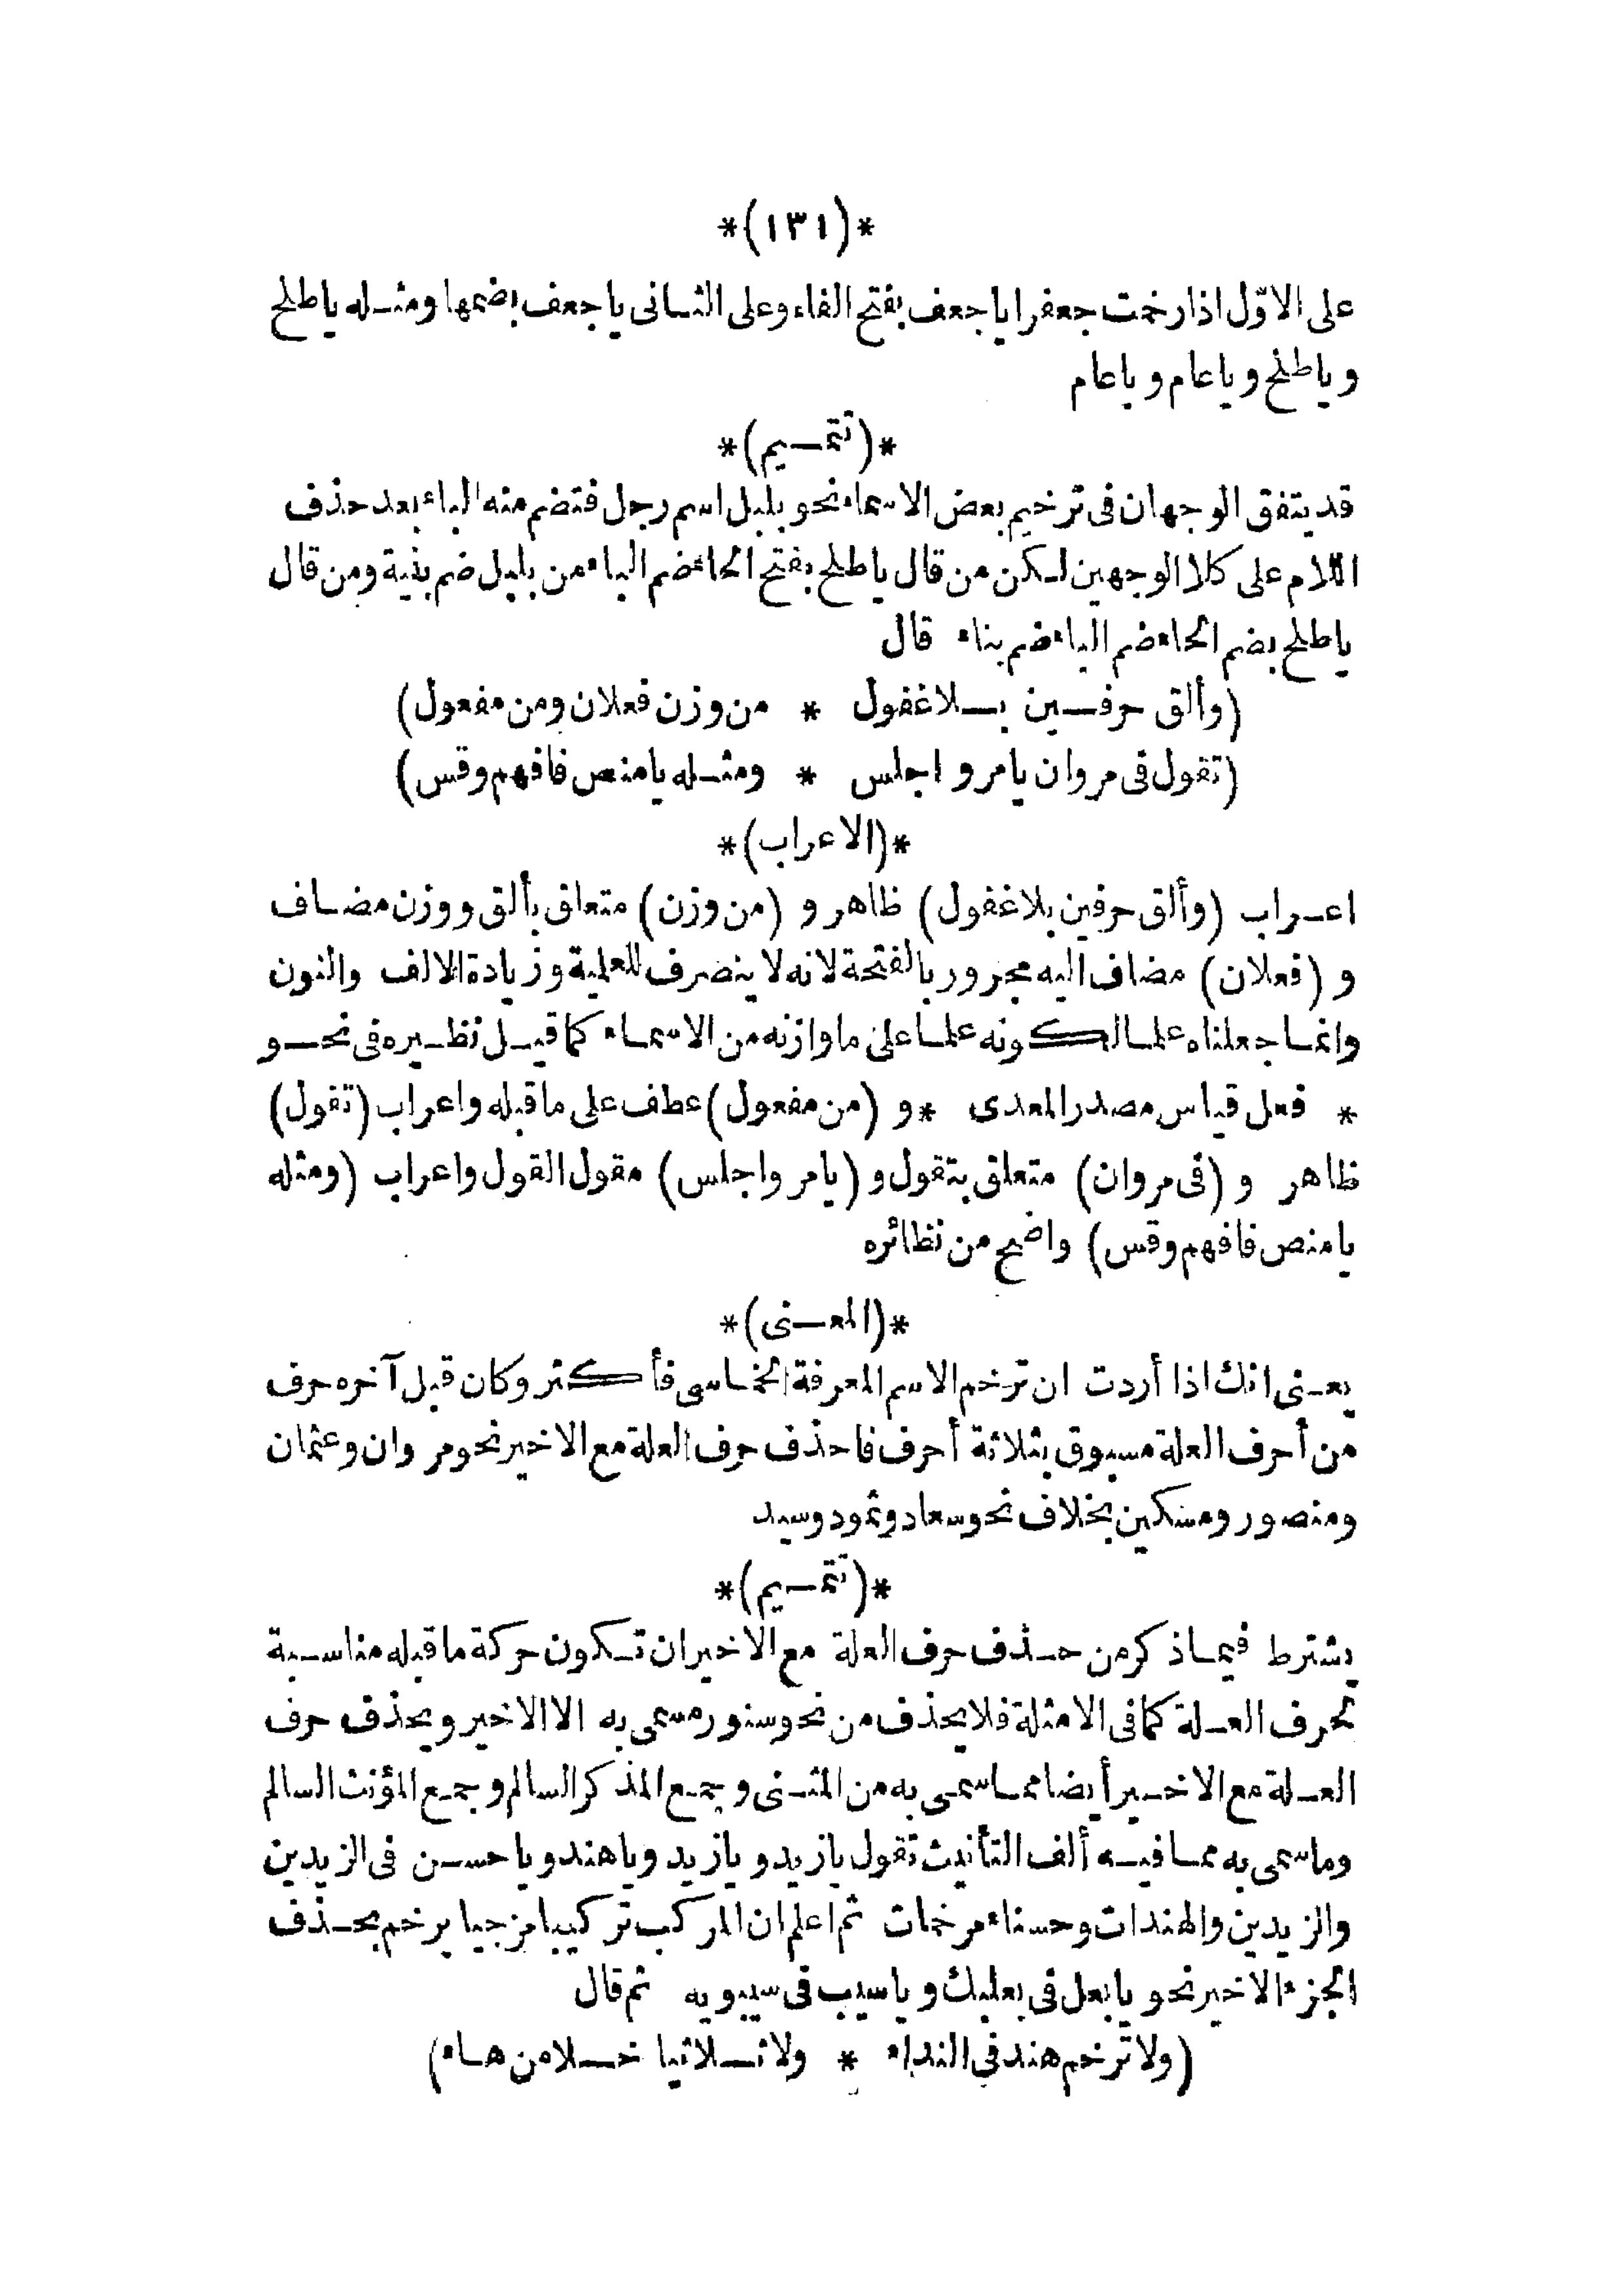 *(١٣١)*
على الاوّل اذا رخمت جعفرا ياجعف بفتح الفاء وعلى الثانى ياجعف بضمها ومثله ياطلح
وياطلح وياعام وياعام
*(تتميم)*
قد يتفق الوجهان فى ترخيم بعض الاسماء نحو بلبل اسم رجل فتضم منه الباء بعد حذف
اللام على كلا الوجهين لكن من قال ياطلح بفتح الحاء ضم الباء من بلبل ضم بنية ومن قال
ياطلح بضم الحاء ضم الباء ضم بناء قال
(وألق حرفين بلا غفول * من وزن فعلان ومن مفعول)
(تقول فى مروان يامرو اجلس * ومثله يامنص فافهم وقس)
*(الاعراب)*
اعراب (وألق حرفين بلا غفول) ظاهر و (من وزن) متعلق بألق ووزن مضاف
و (فعلان) مضاف اليه مجرور بالفتحة لانه لا ينصرف للعلمية وزيادة الالف والنون
وانما جعلناه علما لكونه علما على ما وازنه من الاسماء كما قيل نظيره فى نحو
* فعل قياس مصدر المعدى * و (من مفعول) عطف على ما قبله واعراب (تقول)
ظاهر و (فى مروان) متعلق بتقول و (يامرو اجلس) مقول القول واعراب (ومثله
يامنص فافهم وقس) واضح من نظائره
*(المعنى)*
يعنى انك اذا أردت ان ترخم الاسم المعرفة الخماسى فأكثر وكان قبل آخره حرف
من أحرف العلة مسبوق بثلاثة أحرف فاحذف حرف العلة مع الاخير نحو مروان وعثمان
ومنصور ومسكين بخلاف نحو سعاد وثمود وسيد
*(تتميم)*
يشترط فيما ذكر من حذف حرف العلة مع الاخير ان تكون حركة ما قبله مناسبة
لحرف العلة كما فى الامثلة فلا يحذف من نحو سنور مسمى به الا الاخير ويحذف حرف
العلة مع الاخير أيضا مما سمى به من المثنى وجمع المذكر السالم وجمع المؤنث السالم
وما سمى به مما فيه ألف التأنيث تقول يازيد و يازيد وياهند وياحسن فى الزيدين
والزيدين والهندات وحسناء مرخمات ثم اعلم ان المركب تركيبا مزجيا يرخم بحذف
الجزء الاخير نحو يابعل فى بعلبك وياسيب فى سيبويه ثم قال
(ولا ترخم هند فى النداء * ولا ثلاثيا خلا من هاء)